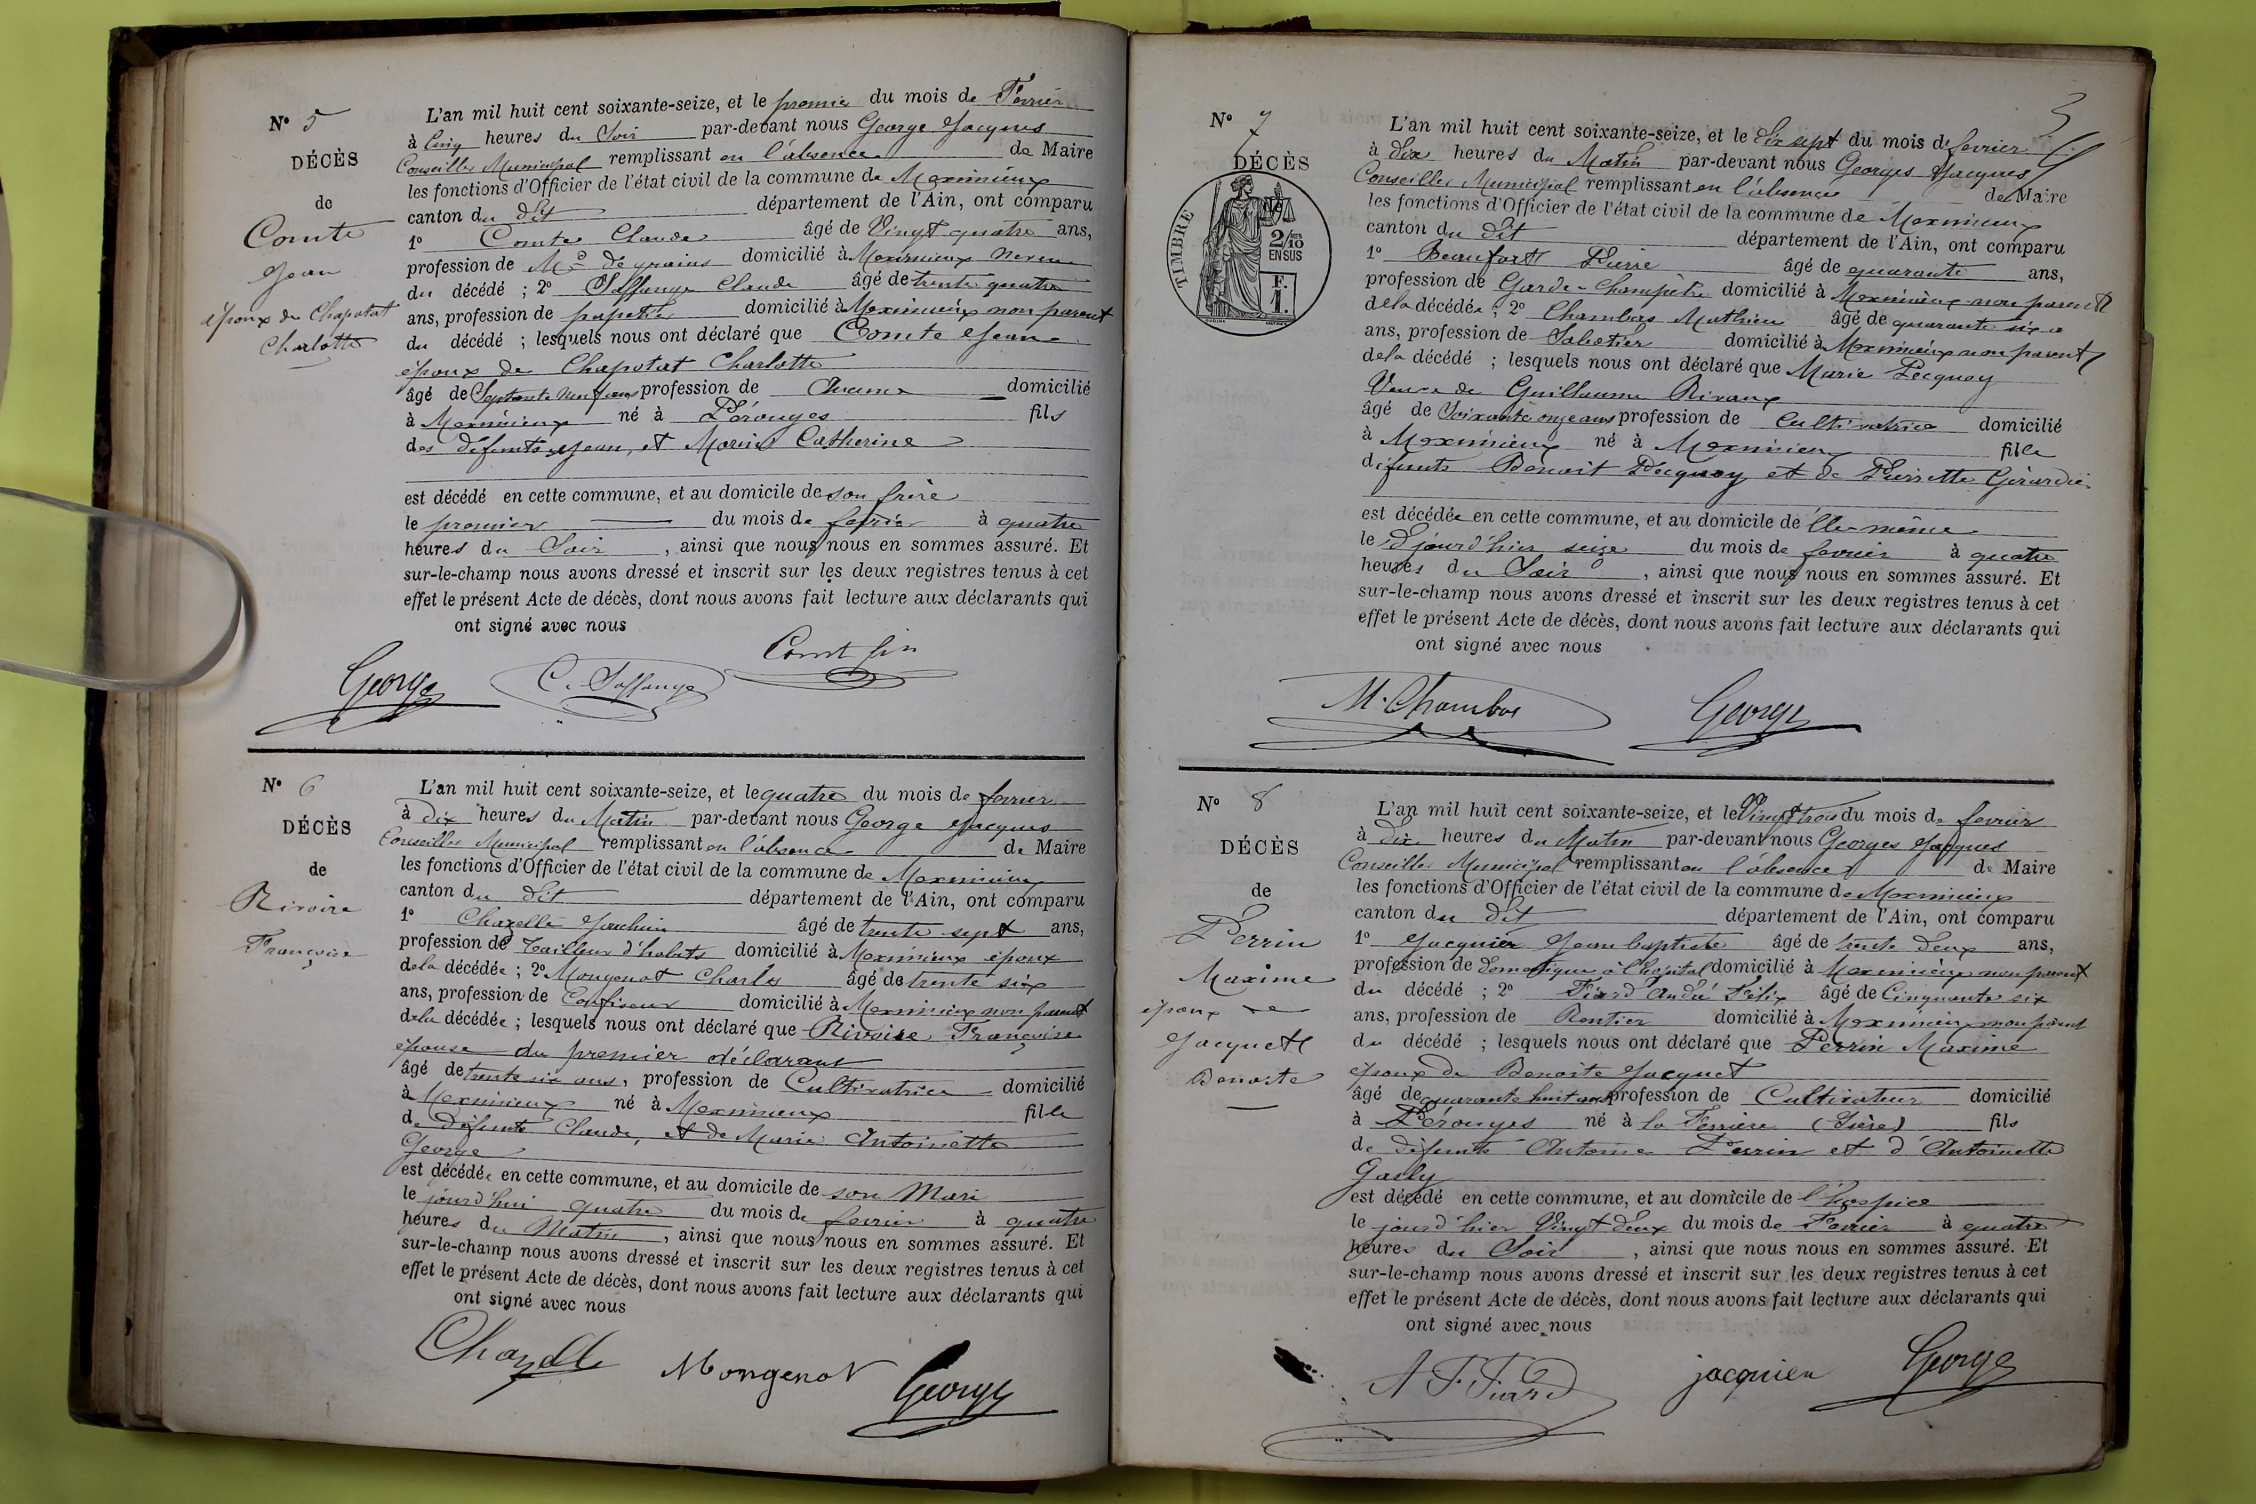 N° 5
DÉCÈS
de
Comte
Jean
époux de Chapotat
Charlotte
L'an mil huit cent soixante-seize, et le premier du mois de Février
à Cinq heures du Soir par-devant nous George Jacques
Conseiller Municipal remplissant en l'absence de Maire
les fonctions d'Officier de l'état civil de la commune de Meximieux
canton du dit département de l'Ain, ont comparu
1° Comte Claude âgé de Vingt quatre ans,
profession de Md de grains domicilié à Meximieux neveu
du décédé ; 2° Claude âgé de trente quatre
ans, profession de papetier domicilié à Meximieux non parent
du décédé ; lesquels nous ont déclaré que Comte Jean
époux de Chapotat Charlotte
âgé de Septante neuf ans profession de domicilié
à Meximieux né à Pérouges fils
des défunts Jean, et Marie Catherine
est décédé en cette commune, et au domicile de son frère
le premier du mois de fevrier à quatre
heures du Soir, ainsi que nous nous en sommes assuré. Et
sur-le-champ nous avons dressé et inscrit sur les deux registres tenus à cet
effet le présent Acte de décès, dont nous avons fait lecture aux déclarants qui
ont signé avec nous
George
N° 6
DÉCÈS
de
Rivoire
Françoise
L'an mil huit cent soixante-seize, et le quatre du mois de fevrier
à Dix heures du Matin par-devant nous George Jacques
Conseiller Municipal remplissant en l'absence de Maire
les fonctions d'Officier de l'état civil de la commune de Meximieux
canton du dit département de l'Ain, ont comparu
1° Chazelle Joachim âgé de trente sept ans,
profession de tailleur d'habits domicilié à Meximieux époux
de la décédée ; 2° Mongenot Charles âgé de trente six
ans, profession de Confiseur domicilié à Meximieux non parent
de la décédée ; lesquels nous ont déclaré que Rivoire Françoise
épouse du premier déclarant
âgé de trente six ans, profession de Cultivatrice domicilié
à Meximieux né à Meximieux fille
de défunt Claude, et de Marie Antoinette
George
est décédée en cette commune, et au domicile de son Mari
le jourd'hui quatre du mois de fevrier à quatre
heures du Matin, ainsi que nous nous en sommes assuré. Et
sur-le-champ nous avons dressé et inscrit sur les deux registres tenus à cet
effet le présent Acte de décès, dont nous avons fait lecture aux déclarants qui
ont signé avec nous
Chazelle Mongenot George
3
N° 7
DÉCÈS
de
TIMBRE
2/10
EN SUS
F.
1.
L'an mil huit cent soixante-seize, et le Dix sept du mois de fevrier
à Dix heures du Matin par-devant nous Georges Jacques
Conseiller Municipal remplissant en l'absence de Maire
les fonctions d'Officier de l'état civil de la commune de Meximieux
canton du dit département de l'Ain, ont comparu
1° Beaufort Pierre âgé de quarante ans,
profession de Garde-Champêtre domicilié à Meximieux non parent
de la décédée ; 2° Chambos Mathieu âgé de quarante six
ans, profession de Sabotier domicilié à Meximieux non parent
de la décédé ; lesquels nous ont déclaré que Marie Pecquoy
Veuve de Guillaume Rivaux
âgé de Soixante onze ans profession de Cultivatrice domicilié
à Meximieux né à Meximieux fille
défunts Benoit Pecquoy et de Pierrette Girardie
est décédée en cette commune, et au domicile de Elle-même
le Djourd'hier seize du mois de fevrier à quatre
heures du Soir, ainsi que nous nous en sommes assuré. Et
sur-le-champ nous avons dressé et inscrit sur les deux registres tenus à cet
effet le présent Acte de décès, dont nous avons fait lecture aux déclarants qui
ont signé avec nous
M. Chambos George
N° 8
DÉCÈS
de
Perrin
Maxime
époux de
Jacquet
Benoite
L'an mil huit cent soixante-seize, et le Vingt trois du mois de fevrier
à Dix heures du Matin par-devant nous Georges Jacques
Conseiller Municipal remplissant en l'absence de Maire
les fonctions d'Officier de l'état civil de la commune de Meximieux
canton du dit département de l'Ain, ont comparu
1° Jacquier Jean baptiste âgé de trente deux ans,
profession de domestique à l'hopital domicilié à Meximieux non parent
du décédé ; 2° Fiard André Félix âgé de Cinquante six
ans, profession de Rentier domicilié à Meximieux non parent
du décédé ; lesquels nous ont déclaré que Perrin Maxime
époux de Benoite Jacquet
âgé de quarante huit ans profession de Cultivateur domicilié
à Pérouges né à la Ferrière (Isère) fils
de défunts Antoine Perrin et d'Antoinette
est décédé en cette commune, et au domicile de l'hospice
le jourd'hier Vingt deux du mois de Fevrier à quatre
heures du Soir, ainsi que nous nous en sommes assuré. Et
sur-le-champ nous avons dressé et inscrit sur les deux registres tenus à cet
effet le présent Acte de décès, dont nous avons fait lecture aux déclarants qui
ont signé avec nous
A F Fiard jacquier George